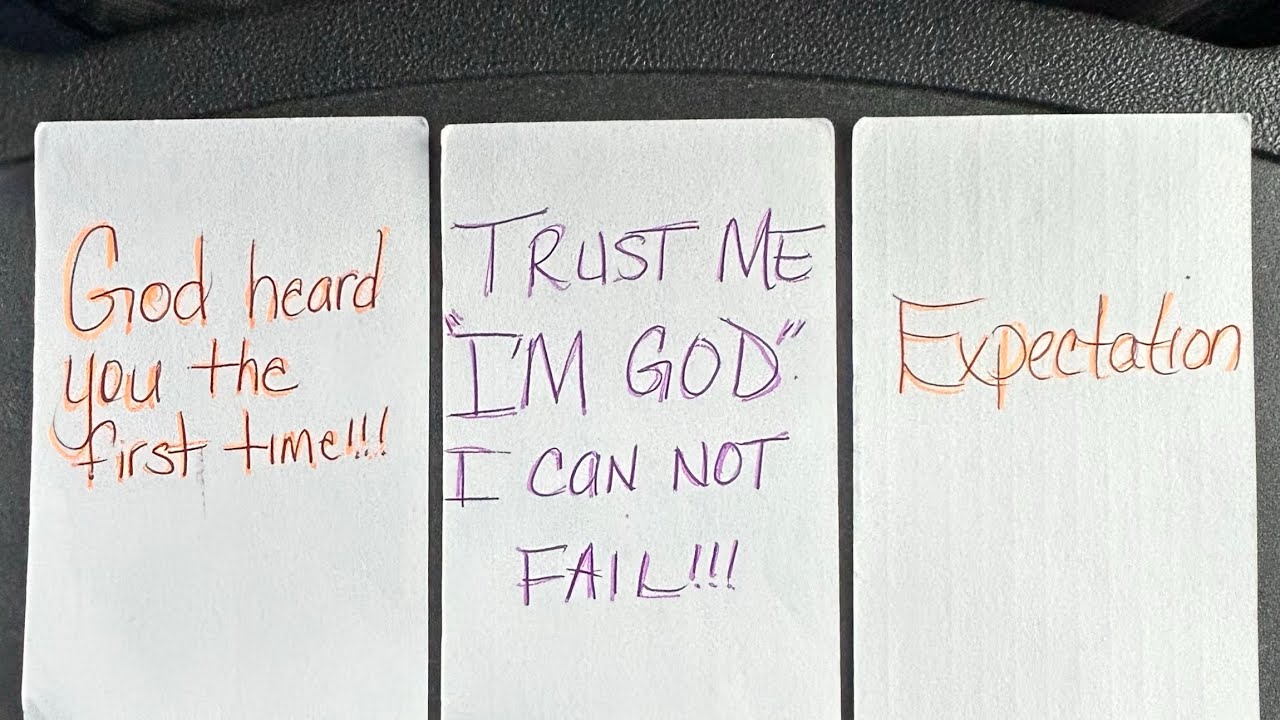 God heard
you the
first time!!!
TRUST ME
"I'M GOD"
I CAN NOT
FAIL!!!
Expectation